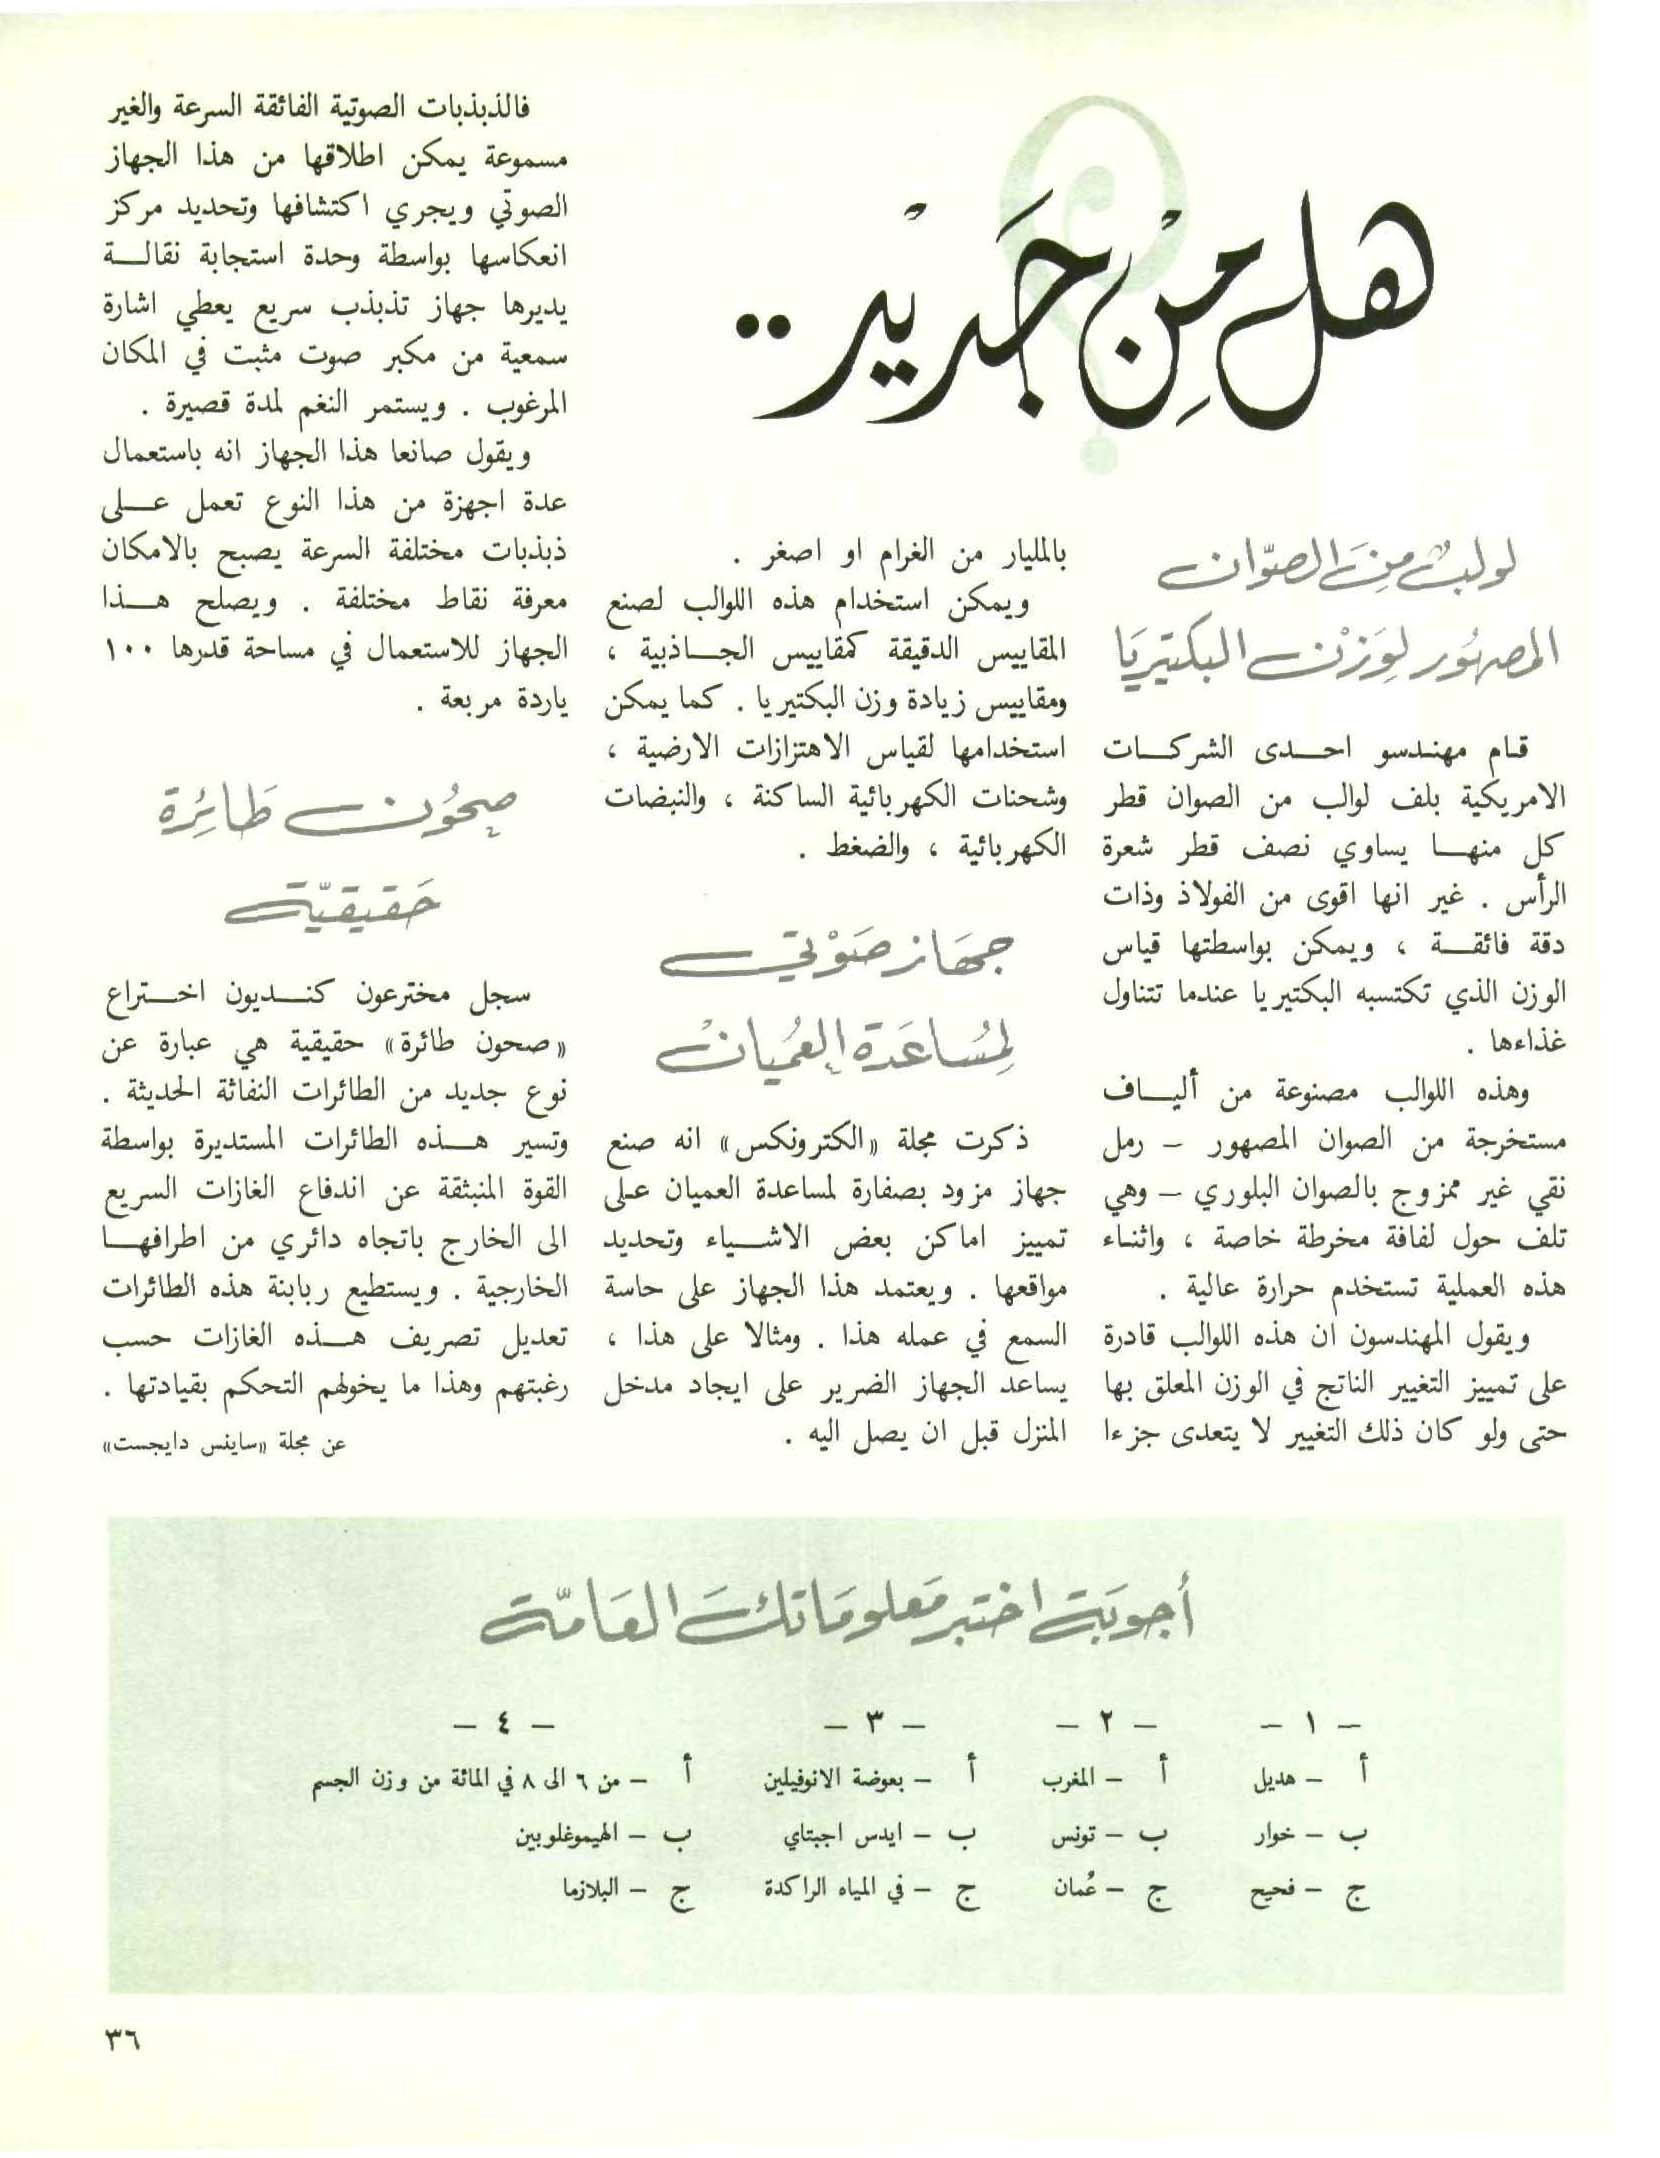 هَل مِنْ جَدِيْد ..
لولبٌ مِنَ الصّوّان
المصهُور لوَزْن البكتيريَا
قام مهندسو احدى الشركات
الامريكية بلف لوالب من الصوان قطر
كل منها يساوي نصف قطر شعرة
الرأس . غير انها اقوى من الفولاذ وذات
دقة فائقة ، ويمكن بواسطتها قياس
الوزن الذي تكتسبه البكتيريا عندما تتناول
غذاءها .
وهذه اللوالب مصنوعة من ألياف
مستخرجة من الصوان المصهور – رمل
نقي غير ممزوج بالصوان البلوري – وهي
تلف حول لفافة مخرطة خاصة ، واثناء
هذه العملية تستخدم حرارة عالية .
ويقول المهندسون ان هذه اللوالب قادرة
على تمييز التغيير الناتج في الوزن المعلق بها
حتى ولو كان ذلك التغيير لا يتعدى جزءا
بالمليار من الغرام او اصغر .
ويمكن استخدام هذه اللوالب لصنع
المقاييس الدقيقة كمقاييس الجاذبية ،
ومقاييس زيادة وزن البكتيريا . كما يمكن
استخدامها لقياس الاهتزازات الارضية ،
وشحنات الكهربائية الساكنة ، والنبضات
الكهربائية ، والضغط .
جهَاز صَوْتي
لمُسَاعَدة العُميَانْ
ذكرت مجلة «الكترونكس» انه صنع
جهاز مزود بصفارة لمساعدة العميان على
تمييز اماكن بعض الاشياء وتحديد
مواقعها . ويعتمد هذا الجهاز على حاسة
السمع في عمله هذا . ومثالا على هذا ،
يساعد الجهاز الضرير على ايجاد مدخل
المنزل قبل ان يصل اليه .
فالذبذبات الصوتية الفائقة السرعة والغير
مسموعة يمكن اطلاقها من هذا الجهاز
الصوتي ويجري اكتشافها وتحديد مركز
انعكاسها بواسطة وحدة استجابة نقالة
يديرها جهاز تذبذب سريع يعطي اشارة
سمعية من مكبر صوت مثبت في المكان
المرغوب . ويستمر النغم لمدة قصيرة .
ويقول صانعا هذا الجهاز انه باستعمال
عدة اجهزة من هذا النوع تعمل على
ذبذبات مختلفة السرعة يصبح بالامكان
معرفة نقاط مختلفة . ويصلح هذا
الجهاز للاستعمال في مساحة قدرها ١٠٠
ياردة مربعة .
صحُون طَائِرة
حَقيقيّة
سجل مخترعون كنديون اختراع
«صحون طائرة» حقيقية هي عبارة عن
نوع جديد من الطائرات النفاثة الحديثة .
وتسير هذه الطائرات المستديرة بواسطة
القوة المنبثقة عن اندفاع الغازات السريع
الى الخارج باتجاه دائري من اطرافها
الخارجية . ويستطيع ربابنة هذه الطائرات
تعديل تصريف هذه الغازات حسب
رغبتهم وهذا ما يخولهم التحكم بقيادتها .
عن مجلة «ساينس دايجست»
أجوبَة اختبر مَعلومَاتكَ العَامّة
– ١ –
أ – هديل
ب – خوار
ج – فحيح
– ٢ –
أ – المغرب
ب – تونس
ج – عُمان
– ٣ –
أ – بعوضة الانوفيلين
ب – ايدس اجبتاي
ج – في المياه الراكدة
– ٤ –
أ – من ٦ الى ٨ في المائة من وزن الجسم
ب – الهيموغلوبين
ج – البلازما
٣٦